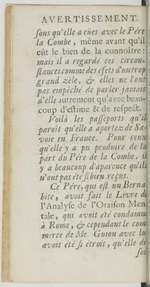 AVERTISSEMENT.
sons qu'elle a eües avec le Pére
la Combe, même avant qu'il
eût le bien de la connoître:
mais il a regardé ces circon-
stances comme des effets d'un trop
grand zéle, & elles ne l'ont
pas empêché de parler jamais
d'elle autrement qu'avec beau-
coup d'estime & de respect.
Voilà les passeports qu'il
paroît qu'elle a aportez de Sa-
voie en France. Pour ceux
qu'elle y a pu produire de la
part du Pére de la Combe, il
y a beaucoup d'aparence qu'ils
n'ont pas été si bien reçus.
Ce Pére, qui est un Berna-
bite, avoit fait le Livre de
l'Analyse de l'Oraison Men-
tale, qui avoit été condamné
à Rome, & cependant le com-
merce de Me. Guion avec lui
avoit été si étroit, qu'elle